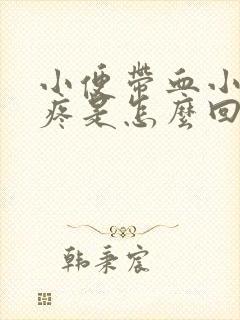 小便带血小
疼是怎麼回
韩秉宸